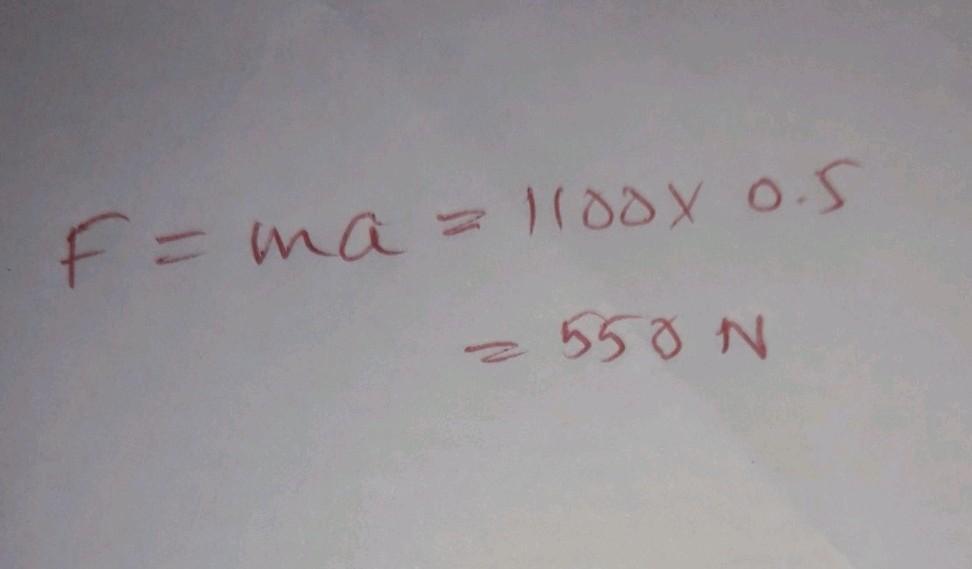 F = ma = 1100 x 0.5
= 550 N